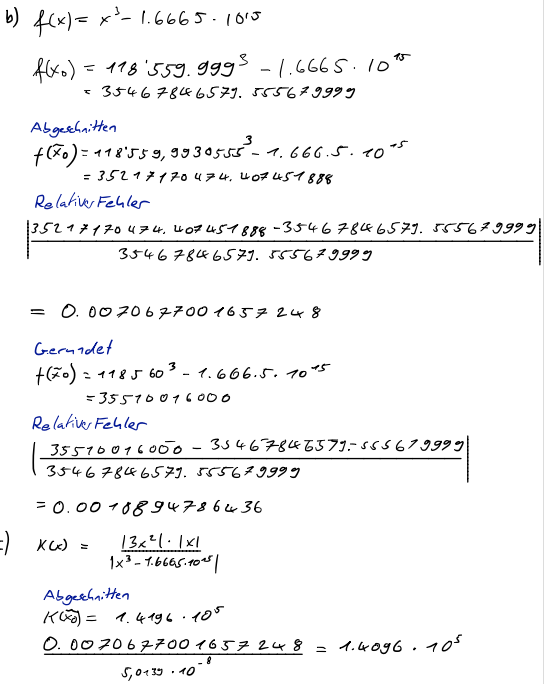 b) f(x) = x³ - 1.6665 · 10^15
f(x₀) = 118'559.999³ - 1.6665 · 10^15
= 35467846579.555679999
Abgeschnitten
f(x̃₀) = 118'559,9930555³ - 1.666.5 · 10^15
= 35217170474.407451888
Relativer Fehler
|35217170474.407451888 - 35467846579.555679999|
35467846579.555679999
= 0.0070677001657248
Gerundet
f(x̃₀) = 118560³ - 1.666.5 · 10^15
= 35510016000
Relativer Fehler
|35510016000 - 35467846579.555679999|
35467846579.555679999
= 0.0011894786436
c) K(x) = |3x²| · |x|
|x³ - 1.6665 · 10^15|
Abgeschnitten
K(x̃₀) = 1.4196 · 10^5
0.0070677001657248 = 1.4096 · 10^5
5,0139 · 10^-8